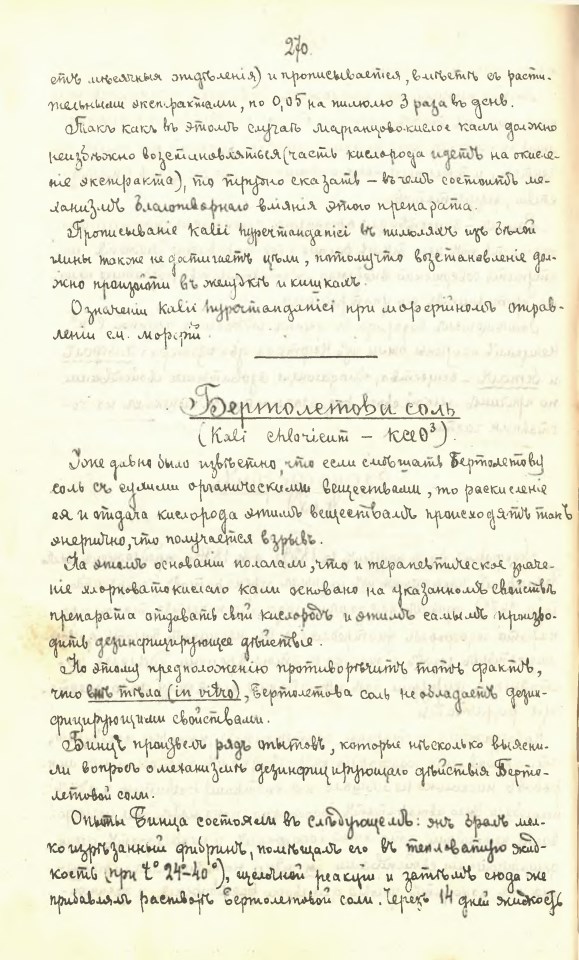 270.
етъ мѣсячныя отдѣленія) и прописывается, вмѣстѣ съ расти-
тельными экстрактами, по 0,05 на пилюлю 3 раза въ день.
Такъ какъ въ этомъ случаѣ марганцовокислое кали должно
неизбѣжно возстановляться (часть кислорода идетъ на окисле-
ніе экстракта), то трудно сказать – въ чемъ состоитъ ме-
ханизмъ благотворнаго вліянія этого препарата.
Прописываніе Kalii hypermanganici въ пилюляхъ изъ бѣлой
глины также не достигаетъ цѣли, потому что возстановленіе дол-
жно произойти въ желудкѣ и кишкахъ.
О значеніи Kalii hypermanganici при морфійномъ отрав-
леніи см. морфій.
Бертолетова соль
(Kali chloricum – KClO³).
Уже давно было извѣстно, что если смѣшать Бертолетову
соль съ сухими органическими веществами, то раскисленіе
ея и отдача кислорода этимъ веществамъ происходятъ такъ
энергично, что получается взрывъ.
На этомъ основаніи полагали, что и терапевтическое значе-
ніе хлорноватокислаго кали основано на указанномъ свойствѣ
препарата отдавать свой кислородъ и этимъ самымъ произво-
дить дезинфицирующее дѣйствіе.
Но этому предположенію противорѣчитъ тотъ фактъ,
что внѣ тѣла (in vitro), Бертолетова соль не обладаетъ дезин-
фицирующими свойствами.
Бинцъ произвелъ рядъ опытовъ, которые нѣсколько выясни-
ли вопросъ о механизмѣ дезинфицирующаго дѣйствія Берто-
летовой соли.
Опыты Бинца состояли въ слѣдующемъ: онъ бралъ мел-
ко изрѣзанный фибринъ, помѣщалъ его въ тепловатую жид-
кость (при t° 24°–40°), щелочной реакціи и затѣмъ сюда же
прибавлялъ растворъ Бертолетовой соли. Черезъ 14 дней жидкость